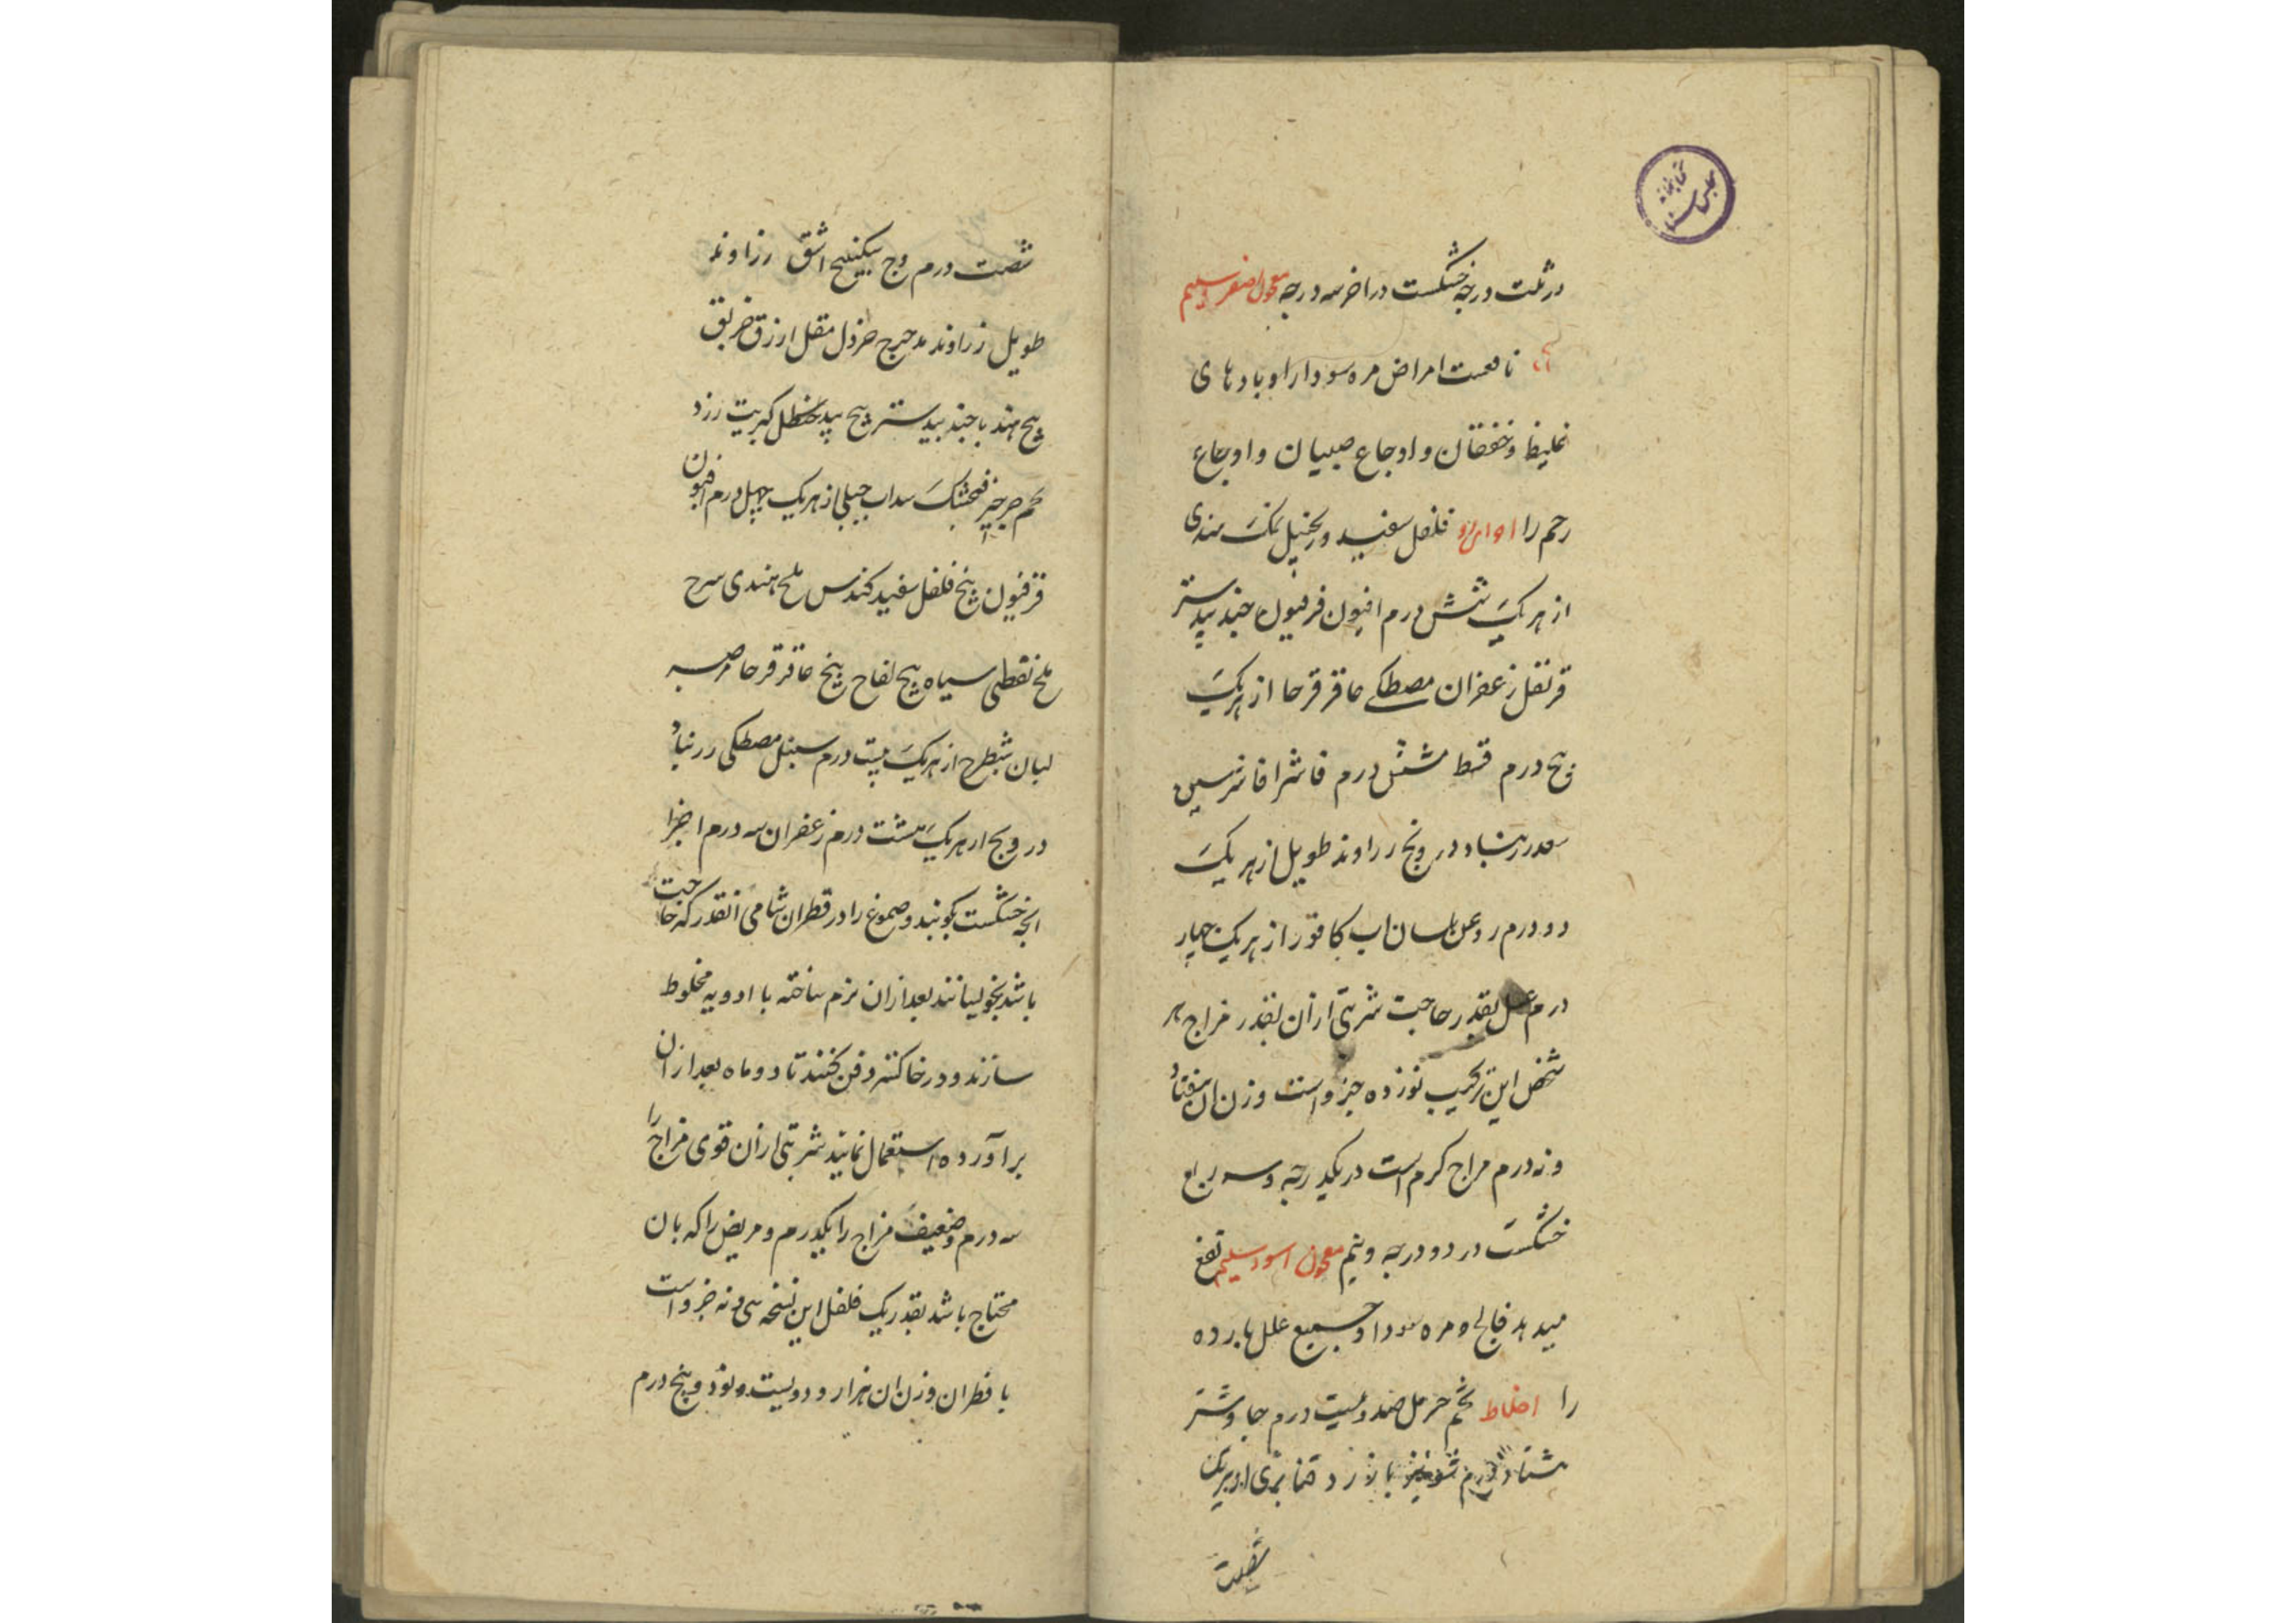 کتابخانه مجلس سنا
در ثلث درجه خشکست در اخر سه درجه معجون اصفر سلیم
نافعست امراض مره سودا را و بادهای
غلیظ و خفقان و اوجاع صبیان و اوجاع
رحم را فلفل سفید و زنجبیل نمک هندی
از هر یک شش درم افیون فرفیون جند بیدستر
قرنفل زعفران مصطکی عاقرقرحا از هر یک
پنج درم قسط شش درم فاشرا فاشرسین
سعد زرنباد درونج زراوند طویل از هر یک
دو درم روغن بلسان اب کافور از هر یک چهار
درم عسل بقدر حاجت شربتی از ان بقدر مزاج هر
شخص این ترکیب نوزده جزو است وزن ان هفتاد
و نه درم مزاج کرم است در یکدرجه و سه ربع
خشکست در دو درجه و نیم معجون اسود سلیم نفع
میدهد فالج و مره سودا و جمیع علل بارده
را اخلاط تخم حرمل صد و بیست درم جاوشیر
هشتاد درم شونیز بازرد قنا بری از هر یک
شصت
شصت درم وج سکبینج اشق زراوند
طویل زراوند مدحرج خردل مقل ارزق خربق
پنج هند با جند بیدستر پنج پید حنظل کبریت زرد
تخم جرجیر فنجنکشک سداب جبلی از هر یک چهل درم افیون
فرفیون پنج فلفل سفید کندس ملح هندی سرح
ملح نفطی سیاه پیح لفاح پنج عاقرقرحا صبر
لبان شیطرح از هر یک بیست درم سنبل مصطکی زرنباد
درونج از هر یک هشت درم زعفران سه درم اجزا
انچه خشکست بکوبند و صموغ را در قطران شامی انقدر که حاجت
باشد بخویسانند بعد از ان نرم ساخته با ادویه مخلوط
سازند و در خاکستر دفن کنند تا دو ماه بعد از ان
برآورده استعمال نمایند شربتی از ان قوی مزاج را
سه درم و ضعیف مزاج را یکدرم و مریض را که بان
محتاج باشد بقدر یک فلفل این نسخه سی و نه جزو است
با قطران وزن ان هزار و دویست و نود و پنج درم